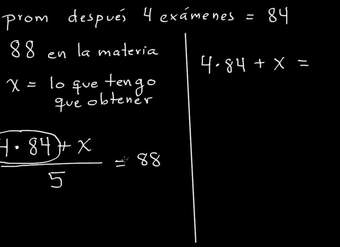 prom después 4 exámenes = 84
88 en la materia
x = lo que tengo
que obtener
4·84 + x
5
= 88
4·84 + x =